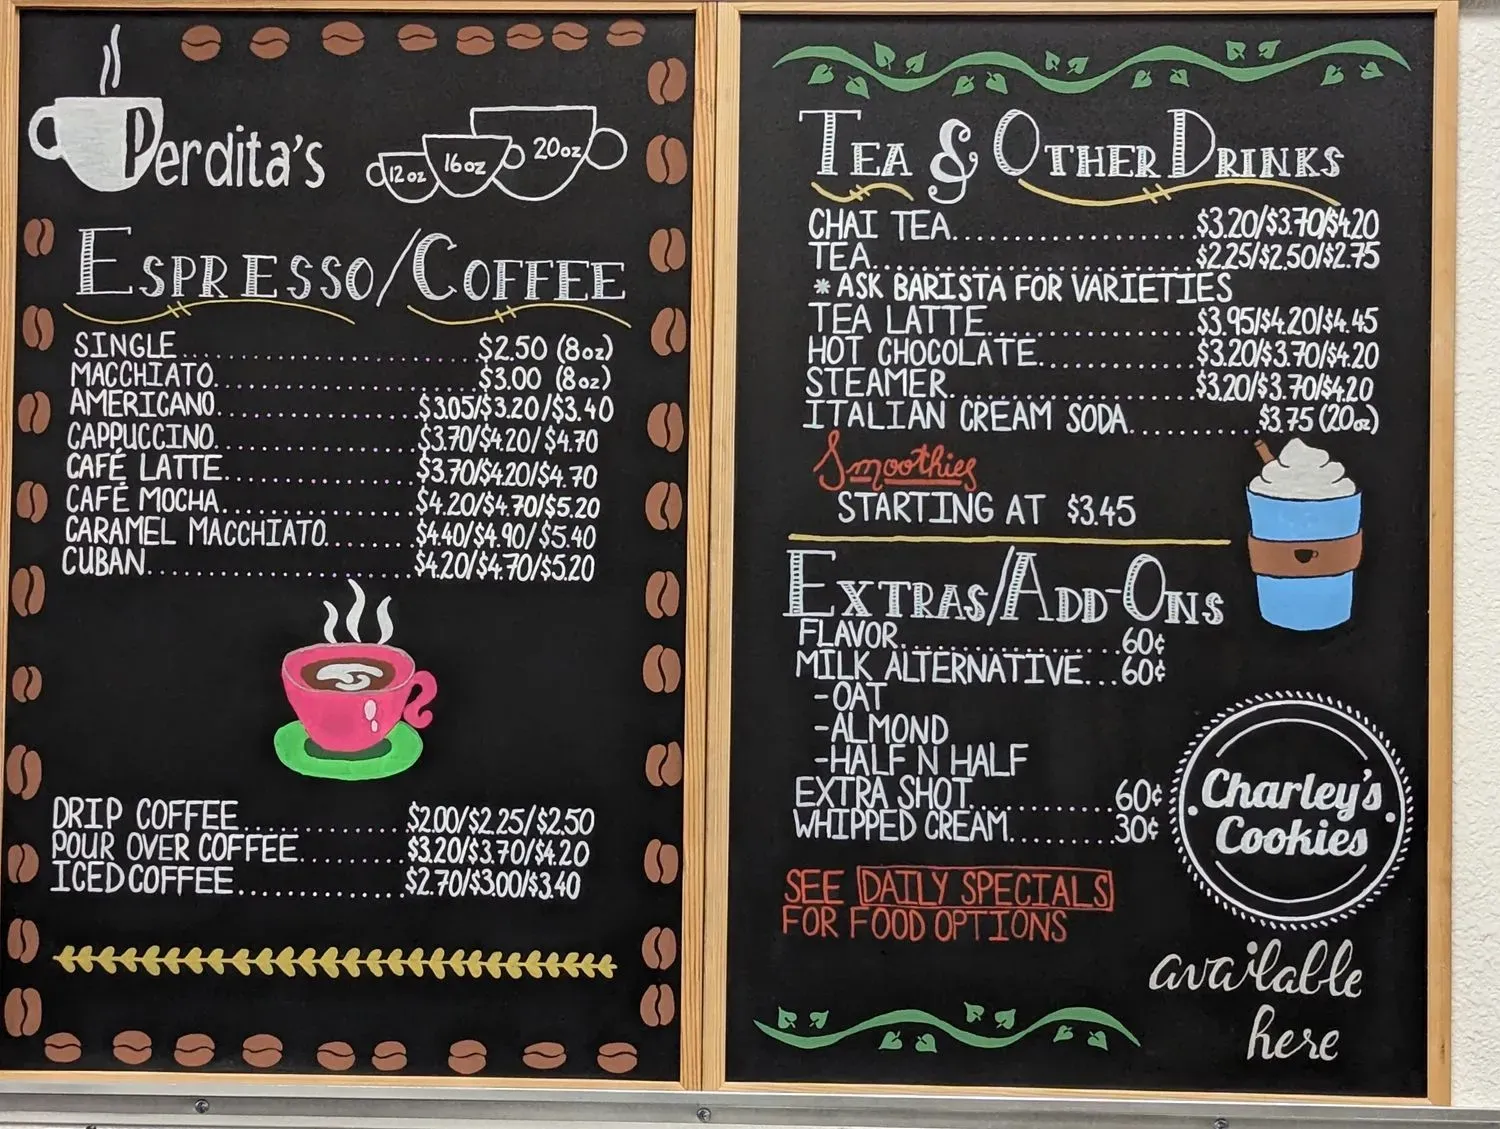 Perdita's
12oz 16oz 20oz
ESPRESSO/COFFEE
SINGLE..............................$2.50 (8oz)
MACCHIATO..........................$3.00 (8oz)
AMERICANO....................$3.05/$3.20/$3.40
CAPPUCCINO....................$3.70/$4.20/$4.70
CAFÉ LATTE....................$3.70/$4.20/$4.70
CAFÉ MOCHA....................$4.20/$4.70/$5.20
CARAMEL MACCHIATO........$4.40/$4.90/$5.40
CUBAN........................$4.20/$4.70/$5.20
DRIP COFFEE.................$2.00/$2.25/$2.50
POUR OVER COFFEE........$3.20/$3.70/$4.20
ICED COFFEE.................$2.70/$3.00/$3.40
TEA & OTHER DRINKS
CHAI TEA......................$3.20/$3.70/$4.20
TEA..............................$2.25/$2.50/$2.75
*ASK BARISTA FOR VARIETIES
TEA LATTE....................$3.95/$4.20/$4.45
HOT CHOCOLATE.............$3.20/$3.70/$4.20
STEAMER......................$3.20/$3.70/$4.20
ITALIAN CREAM SODA...........$3.75 (20oz)
Smoothies
STARTING AT $3.45
EXTRAS/ADD-ONS
FLAVOR....................60¢
MILK ALTERNATIVE...60¢
-OAT
-ALMOND
-HALF N HALF
EXTRA SHOT.............60¢
WHIPPED CREAM.........30¢
Charley's
Cookies
SEE DAILY SPECIALS
FOR FOOD OPTIONS
available
here